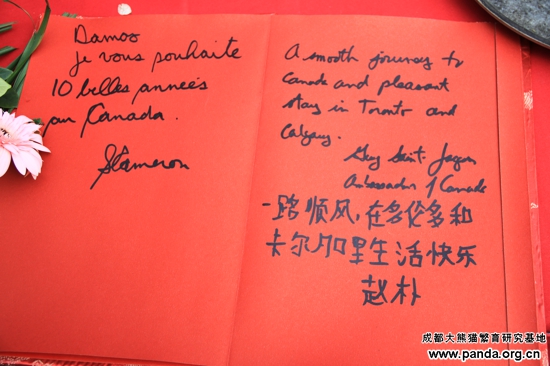 Damos
je vous souhaite
10 belles années
au Canada.
SCameron
A smooth journey to
Canada and pleasant
stay in Toronto and
Calgary.
Guy Saint-Jacques
Ambassador of Canada
一路顺风,在多伦多和
卡尔加里生活快乐
赵朴
成都大熊猫繁育研究基地
www.panda.org.cn